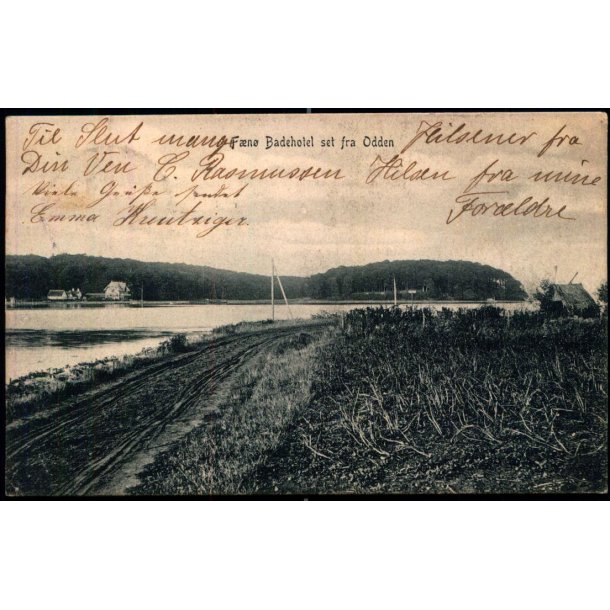 Til Slut mange Hilsener fra
Fænø Badehotel set fra Odden
Din Ven C. Rasmussen Hilsen fra mine
Forældre
Viele Grüße sendet
Emma Huntziger.